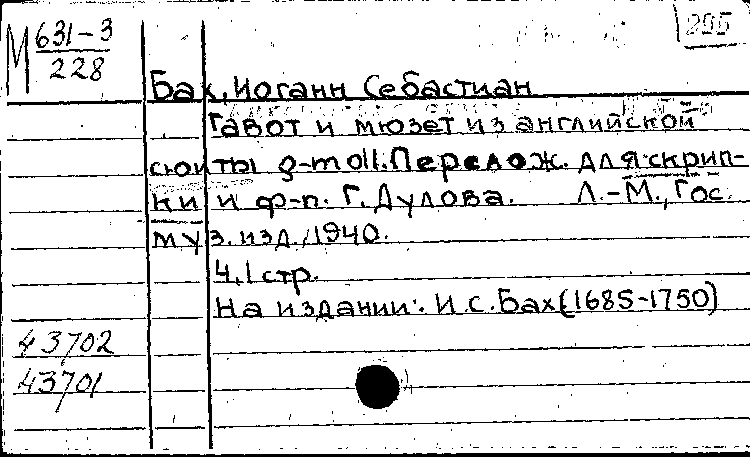 М 631-3
228
205
Бах, Иоганн Себастиан
Гавот и мюзет из английской
сюиты g-moll. Перелож. для скрип-
ки и ф-п. Г. Дулова. Л.-М., Гос.
муз. изд., 1940.
4,1 стр.
На издании: И.С. Бах (1685-1750)
43702
43701